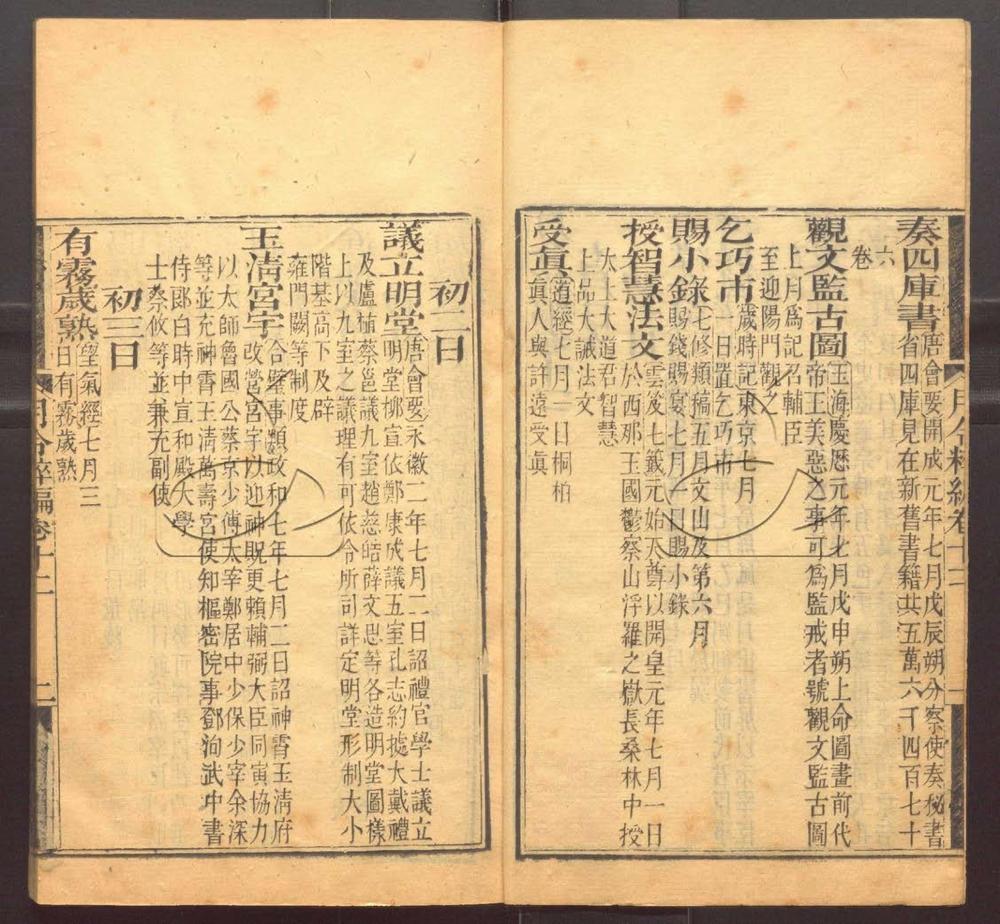 奏四庫書唐會要開成元年七月戊辰朔分察使奏秘書
省四庫見在新舊書籍共五萬六千四百七十
六
卷
觀文監古圖玉海慶厯元年七月戊申朔上命圖畫前代
帝王美惡之事可爲監戒者號觀文監古圖
上月爲記召輔臣
至迎陽門觀之
乞巧市歲時記東京七月
一日置乞巧市
賜小錄七修類稿五月文山及第六月
賜錢賜宴七月一日賜小錄
授智慧法文雲笈七籤元始天尊以開皇元年七月一日
於西那玉國鬱察山浮羅之嶽長桑林中授
太上大道君智慧
上品大誡法文
受眞道經七月一日桐柏
眞人與許遠受眞
初二日
議立明堂唐會要永徽二年七月二日詔禮官學士議立
明堂柳宣依鄭康成議五室孔志約據大戴禮
及盧植蔡邕議九室趙慈皓薛文思等各造明堂圖樣
上以九室之議理有可依令所司詳定明堂形制大小
階基高下及辟
雍門闕等制度
玉淸宮宇合璧事類政和七年七月二日詔神霄玉淸府
改營宮宇以迎神貺更賴輔弼大臣同寅協力
以太師魯國公蔡京少傅太宰鄭居中少保少宰余深
等並充神霄玉淸萬壽宮使知樞密院事鄧洵武中書
侍郎白時中宣和殿大學
士蔡攸等並兼充副使
初三日
有霧歲熟望氣經七月三
日有霧歲熟
月令粹編卷十二
二